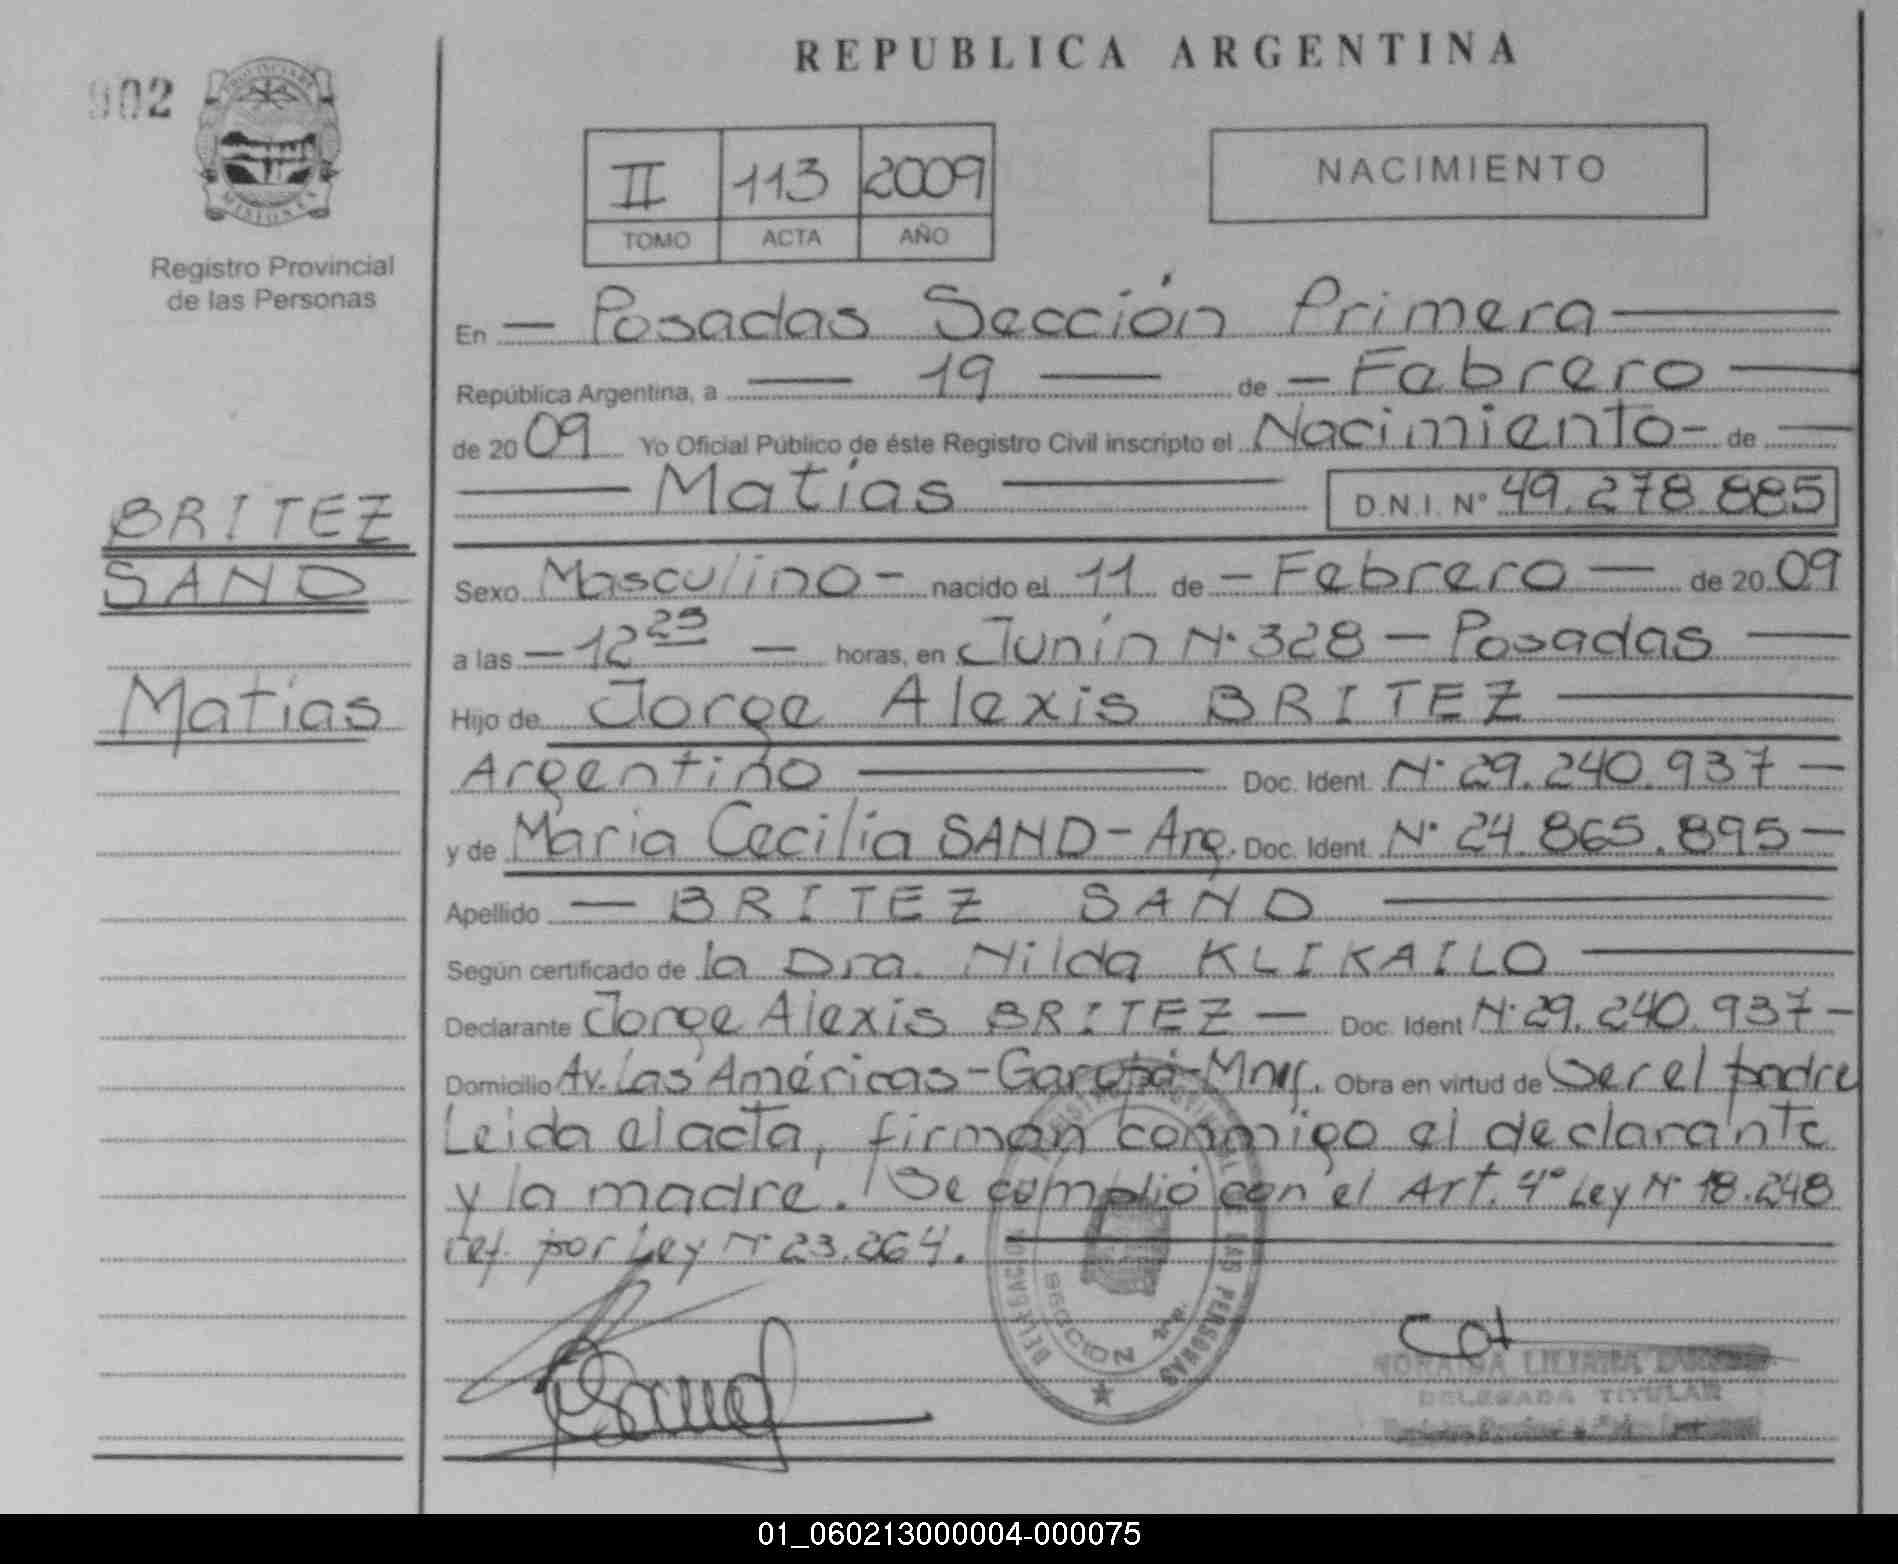 REPUBLICA ARGENTINA
902
PROVINCIA DE
MISIONES
Registro Provincial
de las Personas
II 113 2009
TOMO ACTA AÑO
NACIMIENTO
En — Posadas Sección Primera —
República Argentina, a — 19 — de — Febrero —
de 2009 Yo Oficial Público de éste Registro Civil inscripto el Nacimiento - de —
— Matías — D.N.I. N° 49.278.885
BRITEZ
SAND
Matías
Sexo Masculino - nacido el 11 de - Febrero — de 2009
a las - 12 25 — horas, en Junín N° 328 - Posadas —
Hijo de Jorge Alexis BRITEZ —
Argentino — Doc. Ident. N° 29.240.937 —
y de María Cecilia SAND - Arg. Doc. Ident. N° 24.865.895 —
Apellido — BRITEZ SAND —
Según certificado de la Dra. Nilda KLIKAILO —
Declarante Jorge Alexis BRITEZ — Doc. Ident N° 29.240.937 -
Domicilio Av. Las Américas - Garupá - Mnes. Obra en virtud de Ser el padre
Leida el acta, firman conmigo el declarante
y la madre. Se cumplió con el Art. 4° Ley N° 18.248
ref. por Ley N° 23.264. —
REGISTRO PROVINCIAL DE LAS PERSONAS
DELEGACION
SECCION 1ra.
Sand
LILIANA
DELEGADA TITULAR
01_060213000004-000075